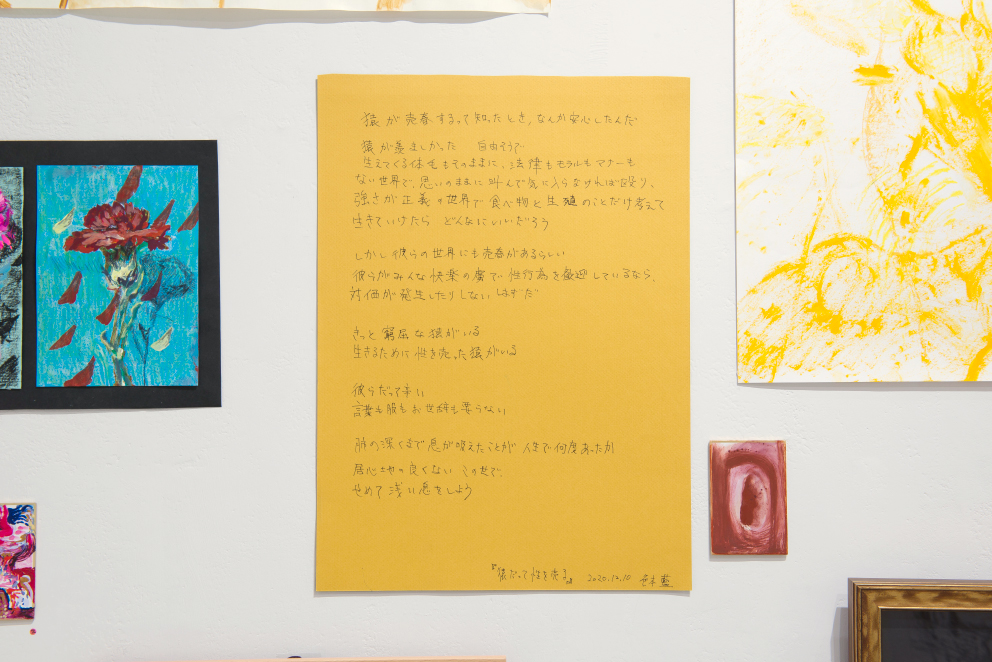 猿が売春するって知ったとき、なんか安心したんだ
猿が羨ましかった 自由そうで
生えてくる体毛もそのままに、法律もモラルもマナーも
ない世界で、思いのままに叫んで気に入らなければ殴り、
強さが正義の世界で食べ物と生殖のことだけ考えて
生きていけたら どんなにいいだろう
しかし彼らの世界にも売春があるらしい
彼らがみんな快楽の虜で性行為を歓迎しているなら、
対価が発生したりしないはずだ
きっと窮屈な猿がいる
生きるために性を売った猿がいる
彼らだって辛い
言葉も服もお世辞も要らない
肺の深くまで息が吸えたことが人生で何度あったか
居心地の良くないこの世で、
せめて浅い息をしよう
『猿だって性を売る』 2020.12.10